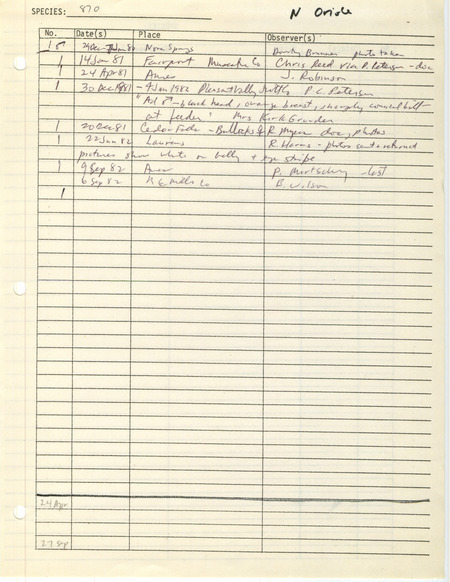 SPECIES: 870 N Oriole
No. Date(s) Place Observer(s)
Nora Springs photo taken
1 14 Jan 81 Fairport Muscatine Co Chris Reed via P. Petersen - doc
1 24 Apr 81 Ames J. Robinson
1 30 Dec 1981 - 9 Jan 1982 Pleasant Valley P C Petersen
"Ad ♂ - black head, orange breast, sharply conical bill
at feeder" Mrs
1 20 Dec 81 Cedar Falls - Bullocks R Myers doc, photos
1 22 Jan 82 Laurens R. Harms - photos sent + returned
pictures show white on belly + eye stripe
1 9 Sep 82 Ames P. Martsching
1 6 Sep 82 Mills Co B. Wilson
1
24 Apr
27 Sep